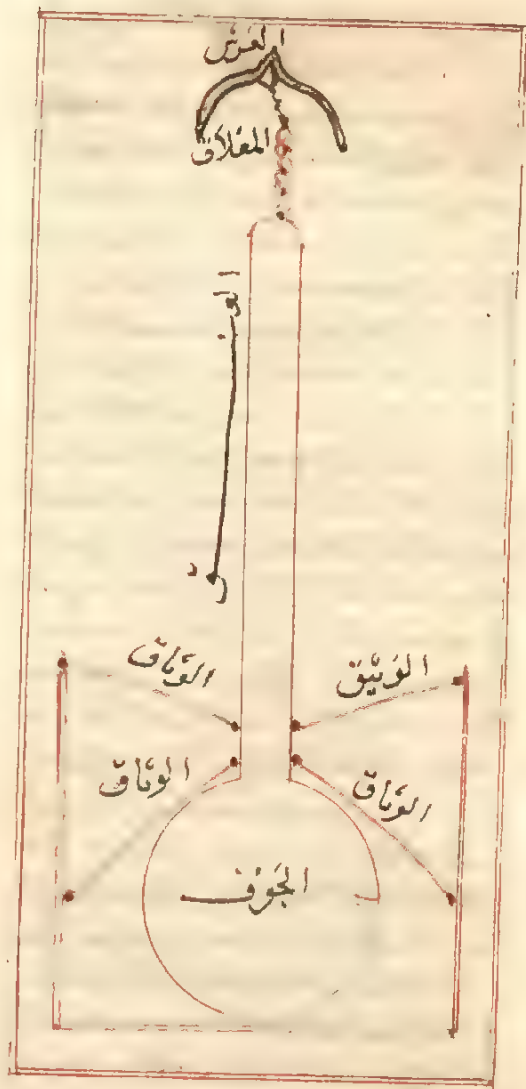 العَرش
المعلاَق
العنق
الوَثاق
الوَثيَق
الوثاق
الوَثاق
الجَوف